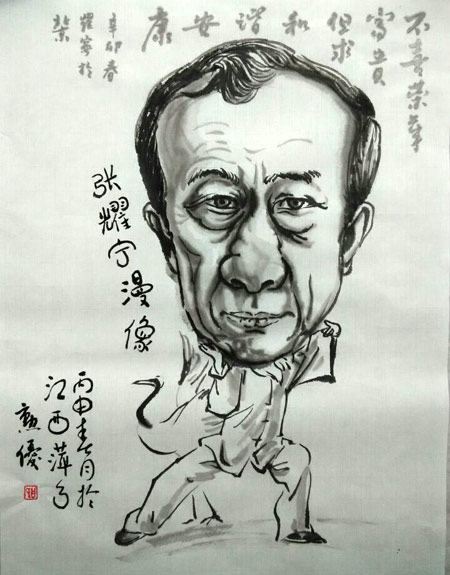 不喜荣华
富贵
但求
和
谐
安
康
辛卯春
耀宁於
张耀宁漫像
丙申春月於
江西萍乡